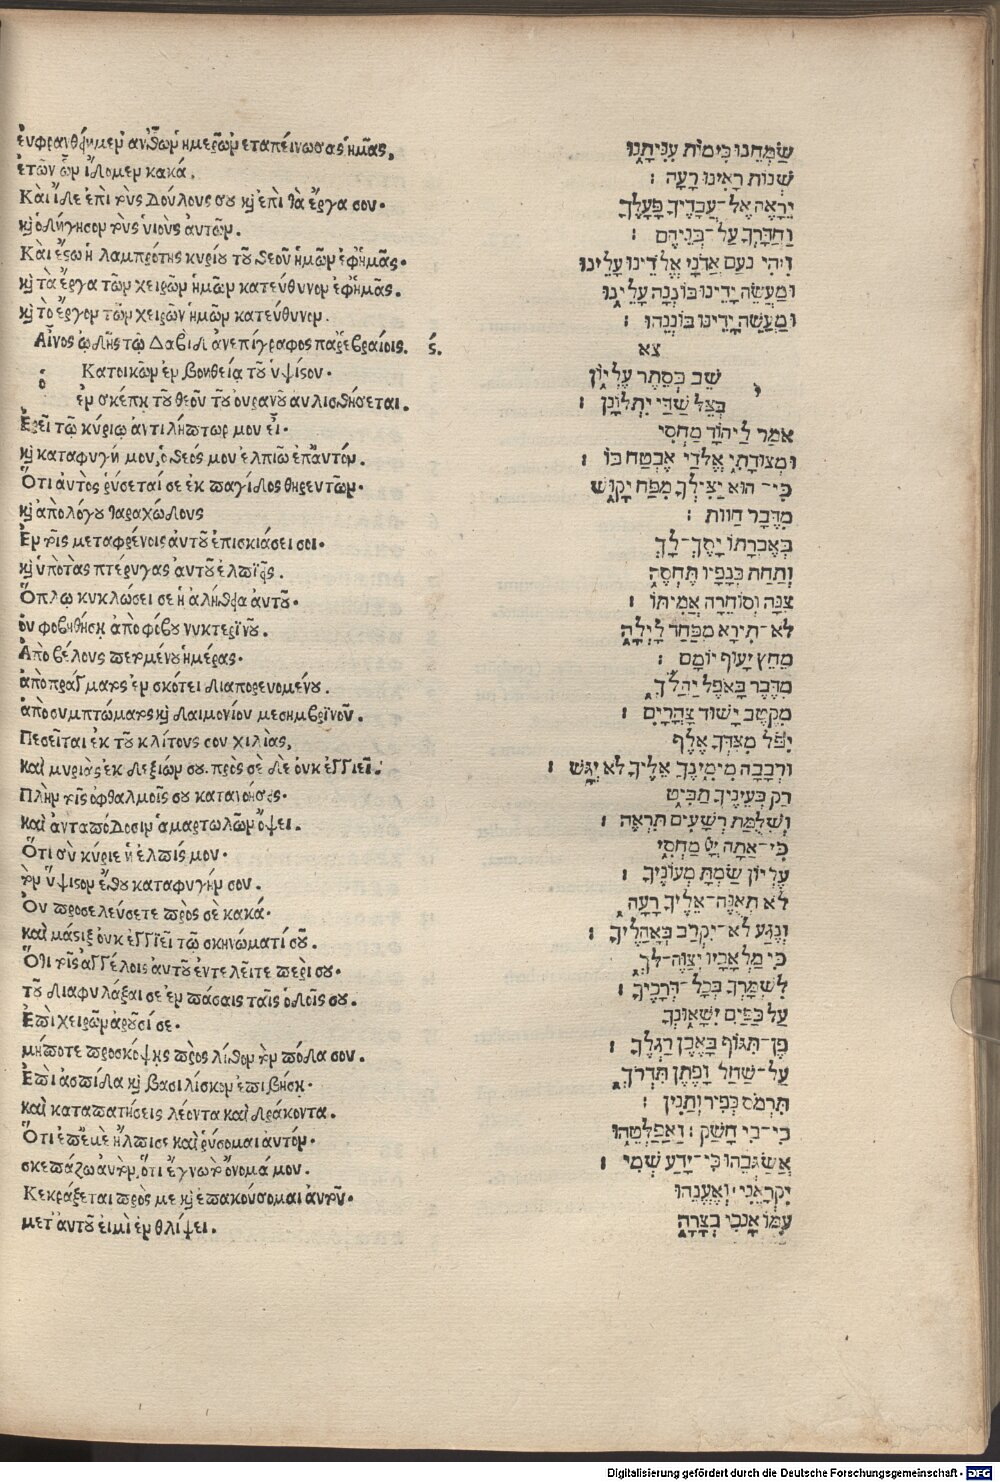 ἐυφρανθείημεν ἀνθ῾ὧν ἡμερῶν εταπείνωσας ἡμᾶς,
ἐτῶν ὧν ἴδομεν κακά.
Κὰι ἴδε ἐπὶ τοὺς δούλους σου κỳ ἐπὶ τὰ ἔργα σου·
κỳ ὁδήγησον τοὺς ὑιοὺς ἀυτῶν.
Κὰι ἔςω ἡ λαμπρότης κυρίου τοῦ θεοῦ ἡμῶν ἐφ᾽ἡμᾶς·
κỳ τὰ ἔργα τῶν χειρῶν ἡμῶν κατεύθυνον ἐφ᾽ἡμᾶς.
κỳ τὸ ἔργον τῶν χειρῶν ἡμῶν κατεύθυνον.
Αἶνος ᾠδῆς τῷ Δαβὶδ ἀνεπίγραφος παρ᾽ἑβραίοις. ς΄.
Κατοικῶν ἐν βοηθείᾳ τοῦ ὑψίσου·
ἐν σκέπῃ τοῦ θεοῦ τοῦ ὀυρανοῦ αυλισθήσεται.
Ἐρεῖ τῷ κύριῳ ἀντιλήπτωρ μου εἶ·
κỳ καταφυγή μου, ὁ θεός μου ἐλπιῶ ἐπ᾽ἀυτόν.
Ὅτι ἀυτὸς ῥύσεταί σε ἐκ παγίδος θηρευτῶν·
κỳ ἀπὸ λόγου ταραχώδους
Ἐν τοῖς μεταφρένοις ἀυτοῦ ἐπισκιάσει σοι·
κỳ ὑπὸ τὰς πτέρυγας ἀυτοῦ ἐλπιεῖς.
Ὅπλῳ κυκλώσει σε ἡ αλήθεια ἀυτοῦ·
ὀυ φοβηθήσῃ ἀπὸ φόβου νυκτερινοῦ.
Ἀπὸ βέλους πετομένου ἡμέρας·
ἀπὸ πράγματος ἐν σκότει διαπορευομένου.
ἀπὸ συμπτώματος κỳ δαιμονίου μεσημβρινοῦ.
Πεσεῖται ἐκ τοῦ κλίτους σου χιλιὰς,
καὶ μυριὰς ἐκ δεξιῶν σου. πρὸς σὲ δὲ ὀυκ ἐγγιεῖ.
Πλὴν τοῖς ὀφθαλμοῖς σου κατανοήσεις·
καὶ ἀνταπόδοσιν ἁμαρτωλῶν ὄψει.
Ὅτι σὺ κύριε ἡ ἐλπίς μου·
τὸν ὕψισον ἔθου καταφυγήν σου.
Ὀυ προσελεύσετε πρὸς σὲ κακά·
καὶ μάςιξ ὀυκ ἐγγιεῖ τῷ σκηνώματί σοῦ.
Ὅτι τοῖς ἀγγέλοις ἀυτοῦ ἐντελεῖτε περὶ σου·
τοῦ διαφυλάξαι σε ἐν πάσαις ταῖς ὁδοῖς σου.
Ἐπὶ χειρῶν ἀροῦσί σε·
μήποτε προσκόψῃς πρὸς λίθον τὸν πόδα σου.
Ἐπὶ ἀσπίδα κỳ βασιλίσκον ἐπιβήσῃ·
καὶ καταπατήσεις λέοντα καὶ δράκοντα.
Ὅτι ἐπ᾽ἐμὲ ἤλπισε καὶ ῥύσομαι ἀυτόν·
σκεπάζω ἀυτὸν, ὅτι ἔγνω τὸ ὄνομά μου.
Κεκράξεται πρὸς με κỳ ἐπακούσομαι ἀυτοῦ·
μετ᾽ἀυτοῦ ἐιμὶ ἐν θλίψει.
שַׂמְּחֵנוּ כִּימוֹת עִנִּיתָנוּ
שְׁנוֹת רָאִינוּ רָעָה :
יֵרָאֶה אֶל־עֲבָדֶיךָ פָּעֳלֶךָ
וַהֲדָרְךָ עַל־בְּנֵיהֶם :
וִיהִי נֹעַם אֲדֹנָי אֱלֹדֵינוּ עָלֵינוּ
וּמַעֲשֵׂה יָדֵינוּ כּוֹנְנָה עָלֵינוּ
וּמַעֲשֵׂה יָדֵינוּ כּוֹנְנֵהוּ :
צא
יֹשֵׁב בְּסֵתֶר עֶלְיוֹן
בְּצֵל שַׁדַּי יִתְלוֹנָן :
אֹמַר לַיהוָֹד מַחְסִי
וּמְצוּדָתִי אֱלֹדַי אֶבְטַח בּוֹ :
כִּי־הוּא יַצִּילְךָ מִפַּח יָקוּשׁ
מִדֶּבֶר הַוּוֹת :
בְּאֶבְרָתוֹ יָסֶךְ־לָךְ
וְתַחַת כְּנָפָיו תֶּחְסֶה
צִנָּה וְסוֹחֵרָה אֲמִיתּוֹ :
לֹא־תִירָא מִפַּחַד לָיְלָה
מֵחֵץ יָעוּף יוֹמָם :
מִדֶּבֶר בָּאֹפֶל יַהֲלֹךְ
מִקֶּטֶב יָשׁוּד צָהֳרָיִם :
יִפֹּל מִצִּדְּךָ אֶלֶף
וּרְבָבָה מִימִינֶךָ אֵלֶיךָ לֹא יִגָּשׁ :
רַק בְּעֵינֶיךָ תַבִּיט
וְשִׁלֻּמַת רְשָׁעִים תִּרְאֶה :
כִּי־אַתָּה יְיָ מַחְסִי
עֶלְיוֹן שַׂמְתָּ מְעוֹנֶיךָ :
לֹא תְאֻנֶּה־אֵלֶיךָ רָעָה
וְנֶגַע לֹא־יִקְרַב בְּאָהֳלֶיךָ :
כִּי מַלְאָכָיו יְצַוֶּה־לָּךְ
לִשְׁמָרְךָ בְּכָל־דְּרָכֶיךָ :
עַל כַּפַּיִם יִשָּׂאוּנְךָ
פֶּן־תִּגּוֹף בָּאֶבֶן רַגְלֶךָ :
עַל־שַׁחַל וָפֶתֶן תִּדְרֹךְ
תִּרְמֹס כְּפִיר וְתַנִּין :
כִּי־בִי חָשַׁק : וַאֲפַלְּטֵהוּ
אֲשַׂגְּבֵהוּ כִּי־יָדַע שְׁמִי :
יִקְרָאֵנִי וְאֶעֱנֵהוּ
עִמּוֹ אָנֹכִי בְצָרָה
Digitalisierung gefördert durch die Deutsche Forschungsgemeinschaft - DFG